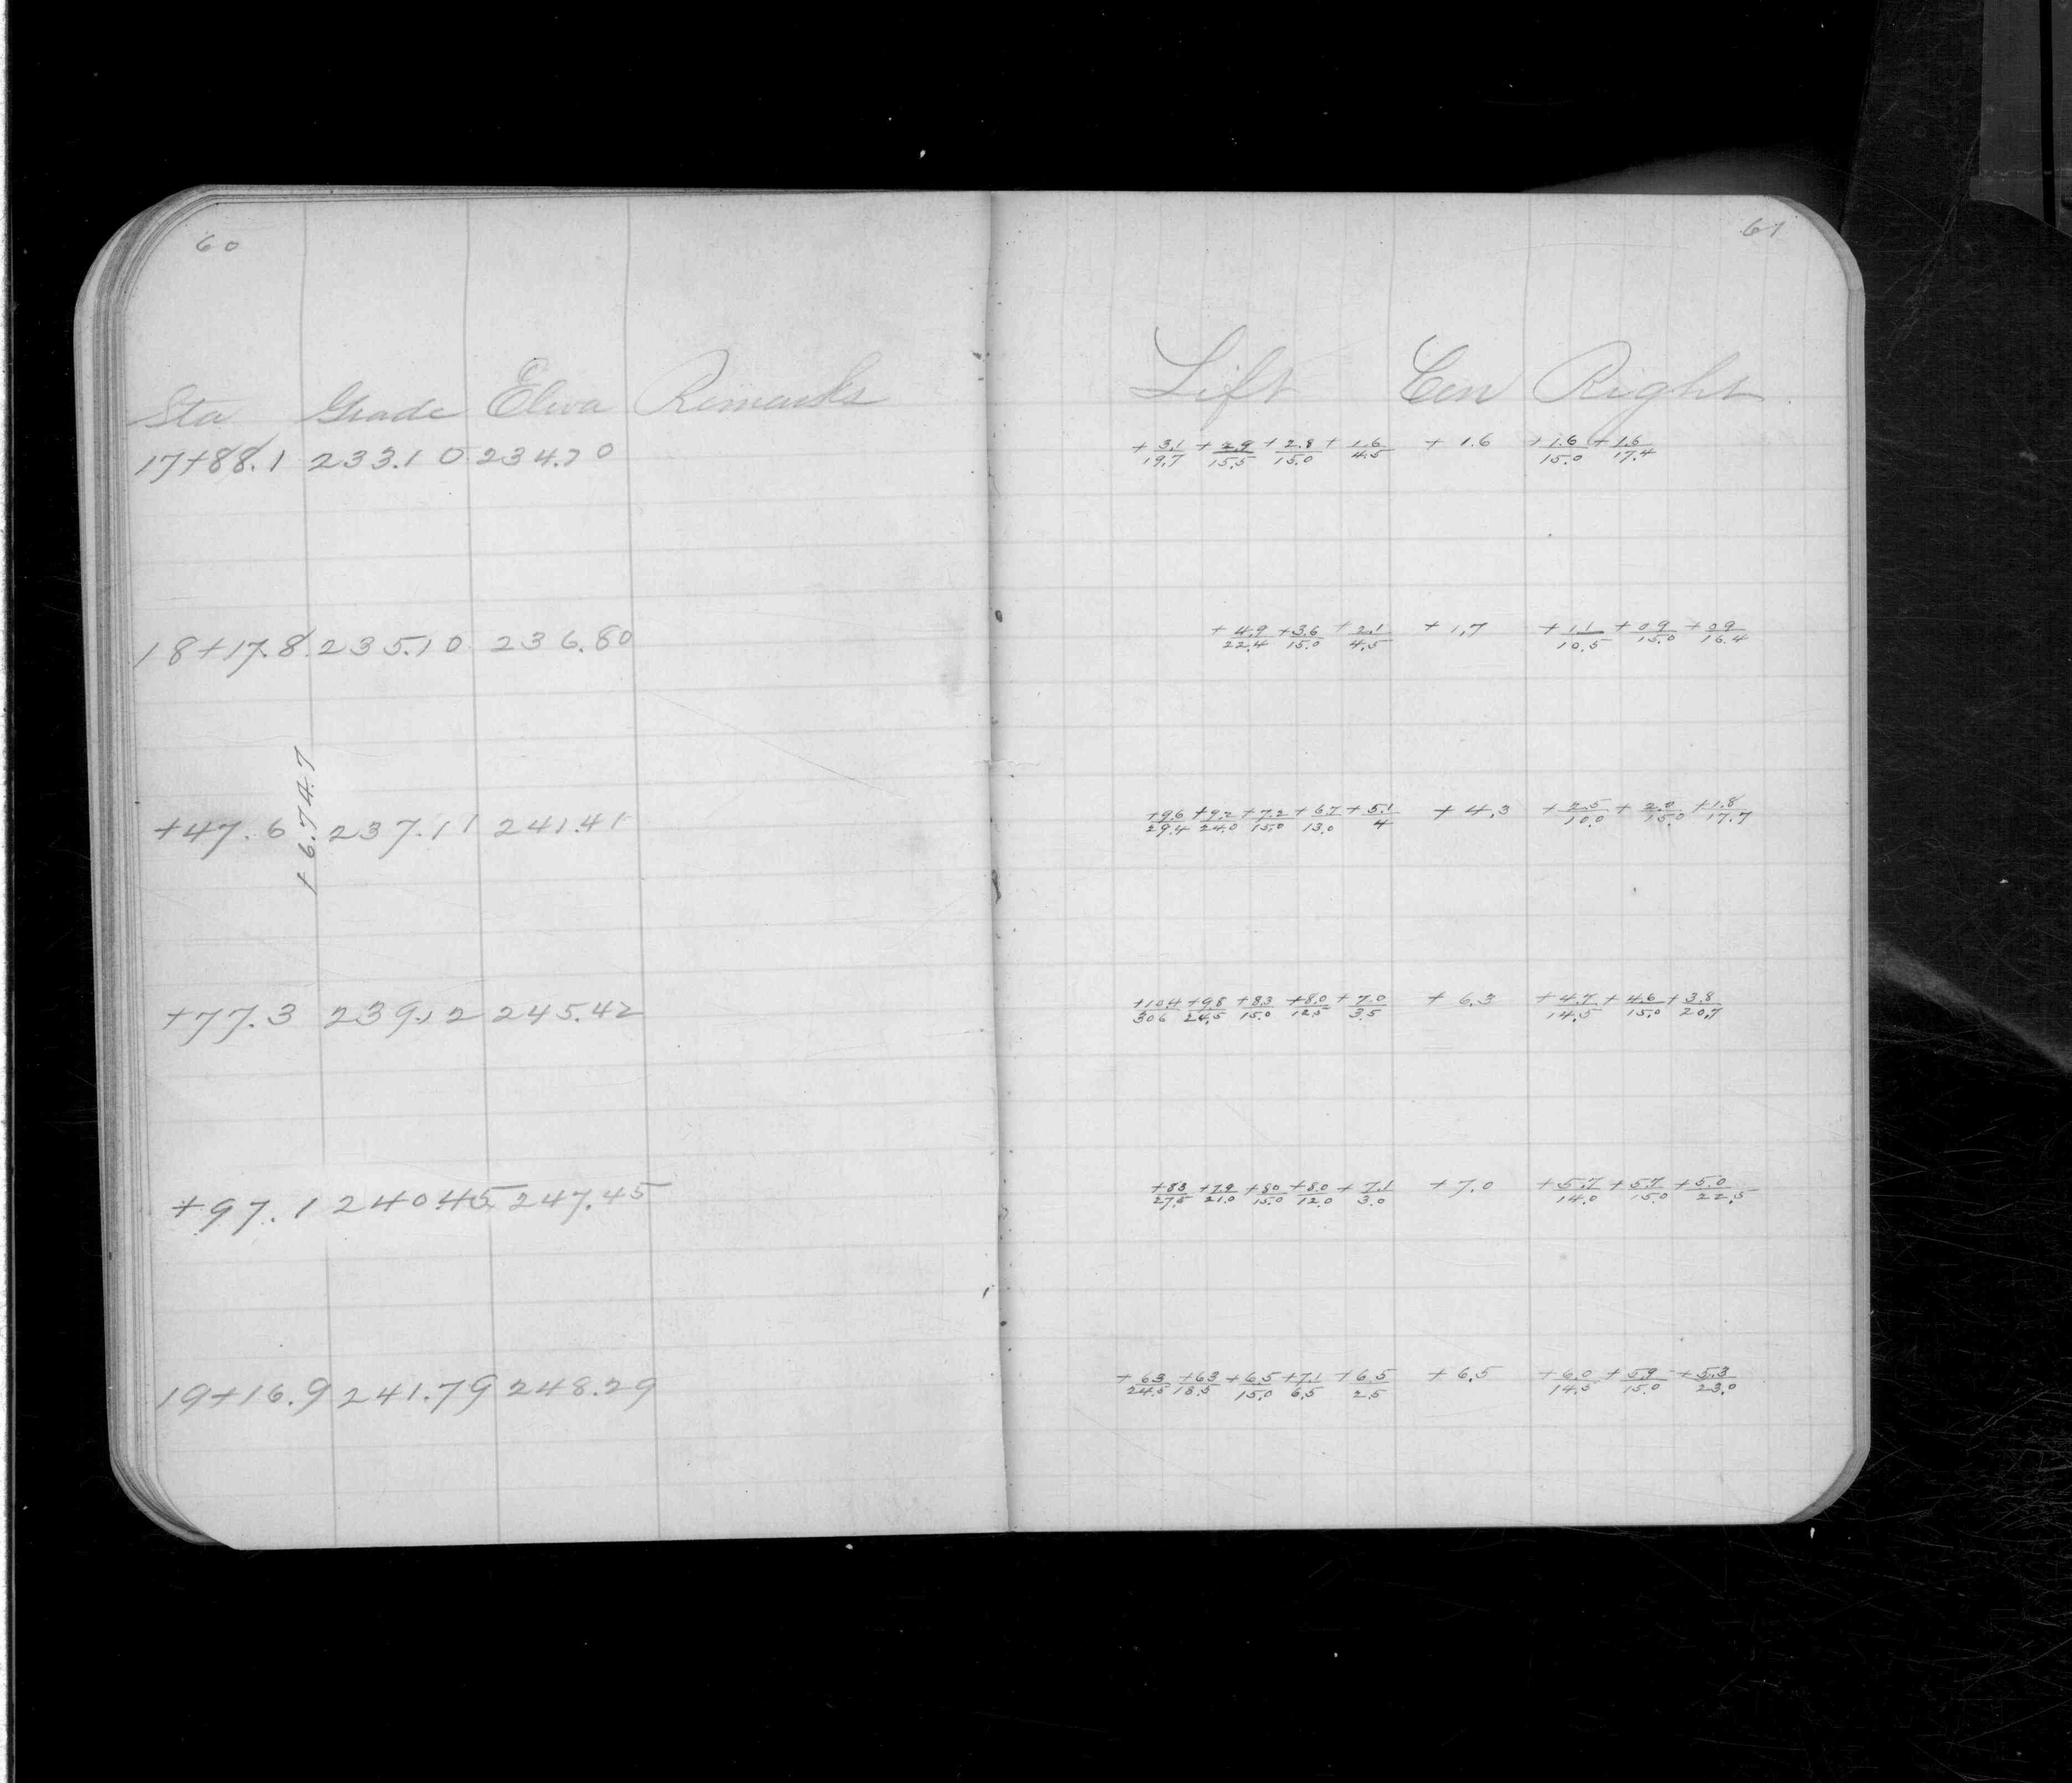 60
Sta Grade Eleva Remarks
17+88.1 233.10 234.70
18+17.8 235.10 236.80
+6.747
+47.6 237.11 241.41
+77.3 239.12 245.42
+97.1 240.45 247.45
19+16.9 241.79 248.29
61
Left Cen Right
+3.1/19.7 +2.9/15.5 +2.8/15.0 +1.6/4.5 +1.6 +1.6/15.0 +1.6/17.4
+4.9/22.4 +3.6/15.0 +2.1/4.5 +1.7 +1.1/10.5 +0.9/15.0 +0.9/16.4
+9.6/29.4 +9.2/24.0 +7.2/15.0 +6.7/13.0 +5.1/4 +4.3 +2.5/10.0 +2.0/15.0 +1.8/17.7
+10.4/30.6 +9.8/24.5 +8.3/15.0 +8.0/12.5 +7.0/3.5 +6.3 +4.7/14.5 +4.6/15.0 +3.8/20.7
+8.3/27.5 +7.9/21.0 +8.0/15.0 +8.0/12.0 +7.1/3.0 +7.0 +5.7/14.0 +5.7/15.0 +5.0/22.5
+6.3/24.5 +6.3/18.5 +6.5/15.0 +7.1/6.5 +6.5/2.5 +6.5 +6.0/14.5 +5.9/15.0 +5.3/23.0